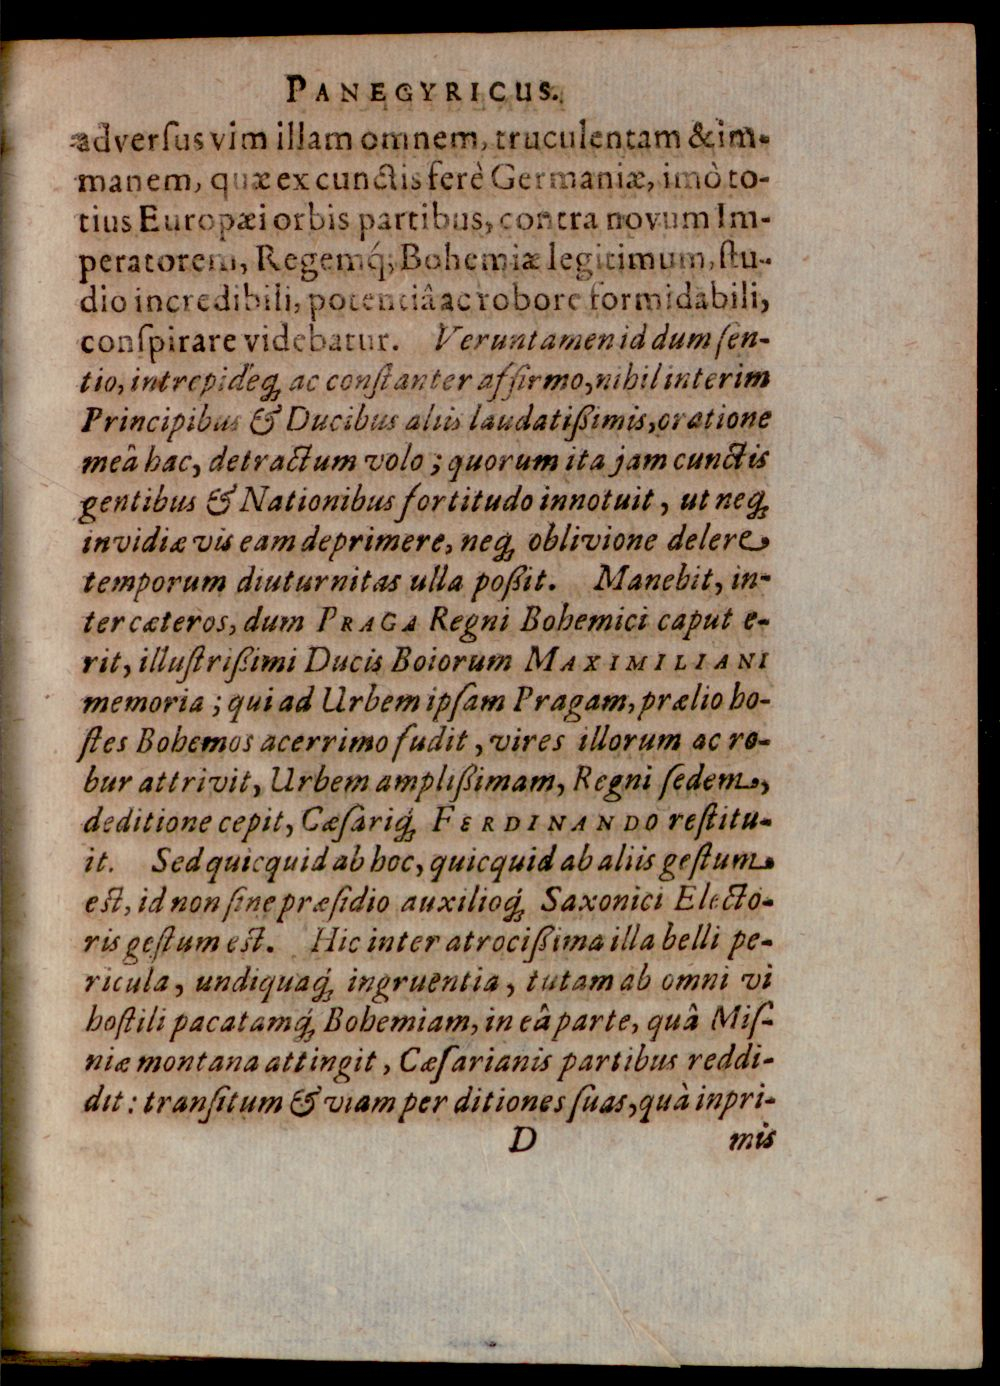 PANEGYRICUS.
adverſus vim illam omnem, truculentam & im-
manem, quæ ex cunctis ferè Germaniæ, imò to-
tius Europæi orbis partibus, contra novum Im-
peratorem, Regemq́; Bohemiæ legitimum, ſtu-
dio incredibili, potentiâ ac robore formidabili,
conſpirare videbatur. Veruntamen id dum ſen-
tio, intrepidéq; ac conſtanter affirmo, nihil interim
Principibus & Ducibus aliis laudatißimis, oratione
meâ hac, detractum volo; quorum ita jam cunctis
gentibus & Nationibus fortitudo innotuit, ut neq;
invidiæ vis eam deprimere, neq; oblivione delere
temporum diuturnitas ulla poßit. Manebit, in-
ter cæteros, dum PRAGA Regni Bohemici caput e-
rit, illuſtrißimi Ducis Boiorum MAXIMILIANI
memoria; qui ad Urbem ipſam Pragam, prælio ho-
ſtes Bohemos acerrimo fudit, vires illorum ac ro-
bur attrivit, Urbem amplißimam, Regni ſedem,
deditione cepit, Cæſariq́; FERDINANDO reſtitu-
it. Sed quicquid ab hoc, quicquid ab aliis geſtum
eſt, id non ſine præſidio auxilioq́; Saxonici Electo-
ris geſtum eſt. Hic inter atrocißima illa belli pe-
ricula, undiquaq́; ingruentia, tutam ab omni vi
hoſtili pacatamq́; Bohemiam, in eâ parte, quâ Miſ-
niæ montana attingit, Cæſarianis partibus reddi-
dit: tranſitum & viam per ditiones ſuas, quà inpri-
D mis